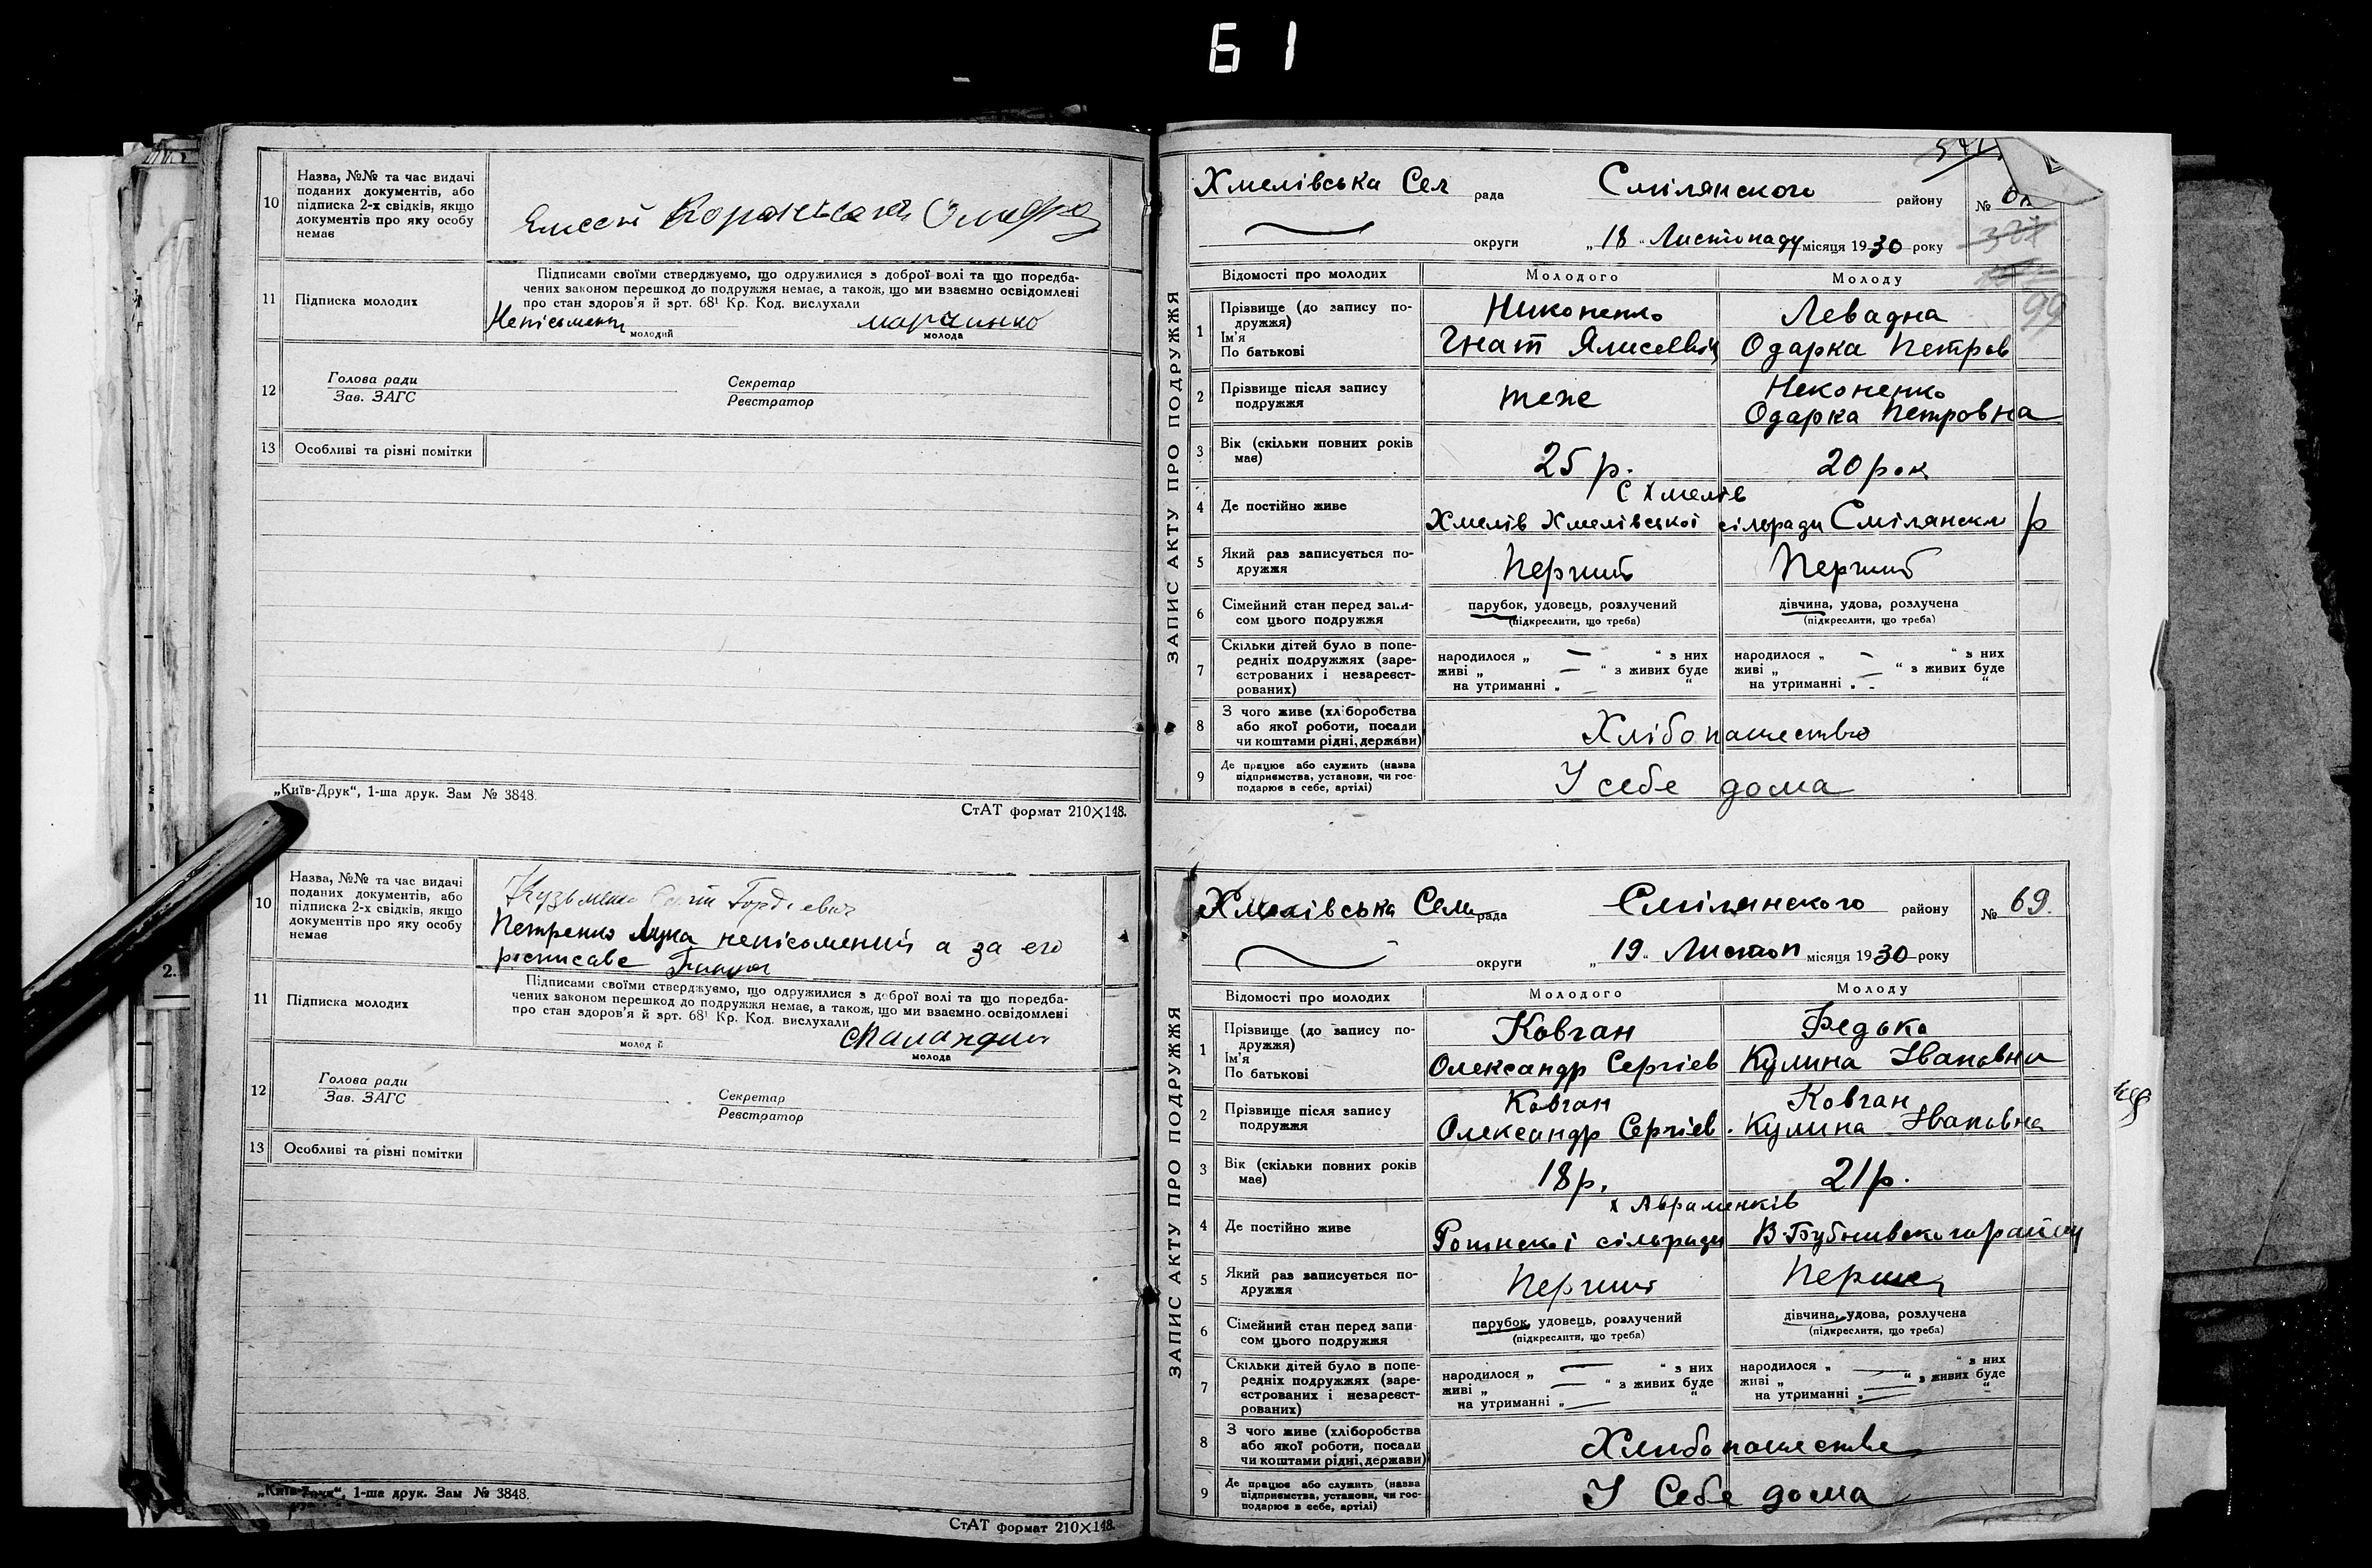 61
10
Назва, №№ та час видачі
поданих документів, або
підписка 2-х свідків, якщо
документів про яку особу
немає
11
Підписка молодих
Підписами своїми стверджуємо, що одружилися з доброї волі та що поредба-
чених законом перешкод до подружжя немає, а також, що ми взаємно освідомлені
про стан здоров'я й арт. 68¹ Кр. Код. вислухали
молодий
молода
12
Голова ради
Зав. ЗАГС
Секретар
Реєстратор
13
Особливі та різні помітки
„Київ-Друк“, 1-ша друк. Зам № 3848.
СтАТ формат 210×148.
10
Назва, №№ та час видачі
поданих документів, або
підписка 2-х свідків, якщо
документів про яку особу
немає
Петренко Лука непісьменний а за его
росписавс
11
Підписка молодих
Підписами своїми стверджуємо, що одружилися з доброї волі та що поредба-
чених законом перешкод до подружжя немає, а також, що ми взаємно освідомлені
про стан здоров'я й арт. 68¹ Кр. Код. вислухали
молодa
12
Голова ради
Зав. ЗАГС
Секретар
Реєстратор
13
Особливі та різні помітки
„Київ-Друк“, 1-ша друк. Зам № 3848.
СтАТ формат 210×148.
ЗАПИС АКТУ ПРО ПОДРУЖЖЯ
Хмелівська Сел рада Смілянского району №
округи „18“ Листопаду місяця 1930 року
99
Відомості про молодих Молодого Молоду
1 Прізвище (до запису по-
дружжя)
Ім'я
По батькові
Никоненко Левадна
Гнат Ялисеевич Одарка Петров
2 Прізвище після запису
подружжя
теже Неконенко
Одарка Петровна
3 Вік (скільки повних років
має)
25 р. 20 рок
4 Де постійно живе
С Хмелів
Хмелів Хмелівської сільради Смілянськ р
5 Який раз записується по-
дружжя
Перший Перший
6 Сімейний стан перед запи-
сом цього подружжя
парубок, удовець, розлучений дівчина, удова, розлучена
(підкреслити, що треба) (підкреслити, що треба)
7 Скільки дітей було в попе-
редніх подружжях (заре-
єстрованих і незареєст-
рованих)
народилося „ — “ з них народилося „ — “ з них
живі „ — “ з живих буде живі „ — “ з живих буде
на утриманні „ — “ на утриманні „ — “
8 З чого живе (хліборобства
або якої роботи, посади
чи коштами рідні, держави)
Хлібопашество
9 Де працює або служить (назва
підприємства, установи, чи гос-
подарює в себе, артілі)
У себе дома
ЗАПИС АКТУ ПРО ПОДРУЖЖЯ
Хмелівська Сель рада Смілянского району № 69.
округи „19“ Листоп місяця 1930 року
Відомості про молодих Молодого Молоду
1 Прізвище (до запису по-
дружжя)
Ім'я
По батькові
Ковган Федько
Олександр Сергіев Кулина Івановна
2 Прізвище після запису
подружжя
Ковган Ковган
Олександр Сергіев. Кулина Івановна
3 Вік (скільки повних років
має)
18 р. 21 р.
4 Де постійно живе
х Авраменків
сільради В Бубнивского району
5 Який раз записується по-
дружжя
Перший
6 Сімейний стан перед запи-
сом цього подружжя
парубок, удовець, розлучений дівчина, удова, розлучена
(підкреслити, що треба) (підкреслити, що треба)
7 Скільки дітей було в попе-
редніх подружжях (заре-
єстрованих і незареєст-
рованих)
народилося „ — “ з них народилося „ — “ з них
живі „ — “ з живих буде живі „ — “ з живих буде
на утриманні „ — “ на утриманні „ — “
8 З чого живе (хліборобства
або якої роботи, посади
чи коштами рідні, держави)
Хлибопашестве
9 Де працює або служить (назва
підприємства, установи, чи гос-
подарює в себе, артілі)
У Себе дома